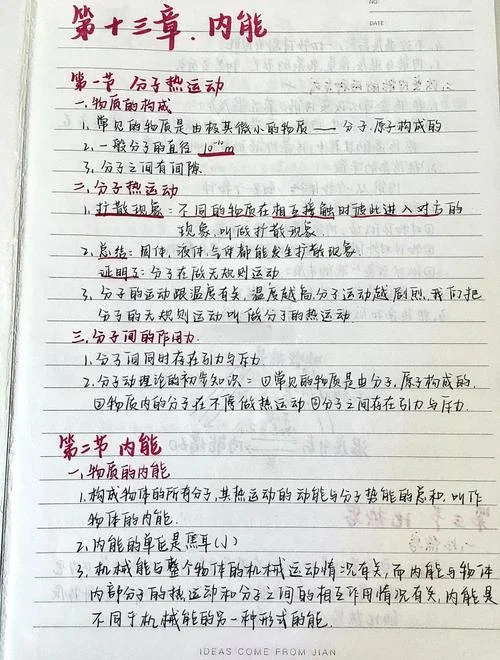 NO:
DATE
第十三章. 内能
第一节 分子热运动
一. 物质的构成
1. 常见的物质是由极其微小的物质 —— 分子.原子构成的
2. 一般分子的直径 10⁻¹⁰m
3. 分子之间有间隙.
二. 分子热运动
1. 扩散现象: 不同的物质在相互接触时彼此进入对方的
现象,叫做扩散现象.
2. 总结: 固体、液体、气体都能发生扩散现象.
证明了: 分子在做无规则运动
3. 分子的运动跟温度有关, 温度越高,分子运动越剧烈, 我们把
分子的无规则运动叫做分子的热运动
三. 分子间的作用力.
1. 分子间同时存在引力与斥力.
2. 分子动理论的初步知识: ①常见的物质是由分子,原子构成的.
②物质内的分子在不停做热运动 ③分子之间存在引力与斥力.
第二节 内能
一. 物质的内能
1. 构成物体的所有分子,其热运动的动能与分子势能的总和, 叫作
物体的内能.
2. 内能的单位是焦耳(J)
3. 机械能与整个物体的机械运动情况有关, 而内能与物体
内部分子的热运动和分子之间的相互作用情况有关, 内能是
不同于机械能的另一种形式的能.
IDEAS COME FROM JIAN